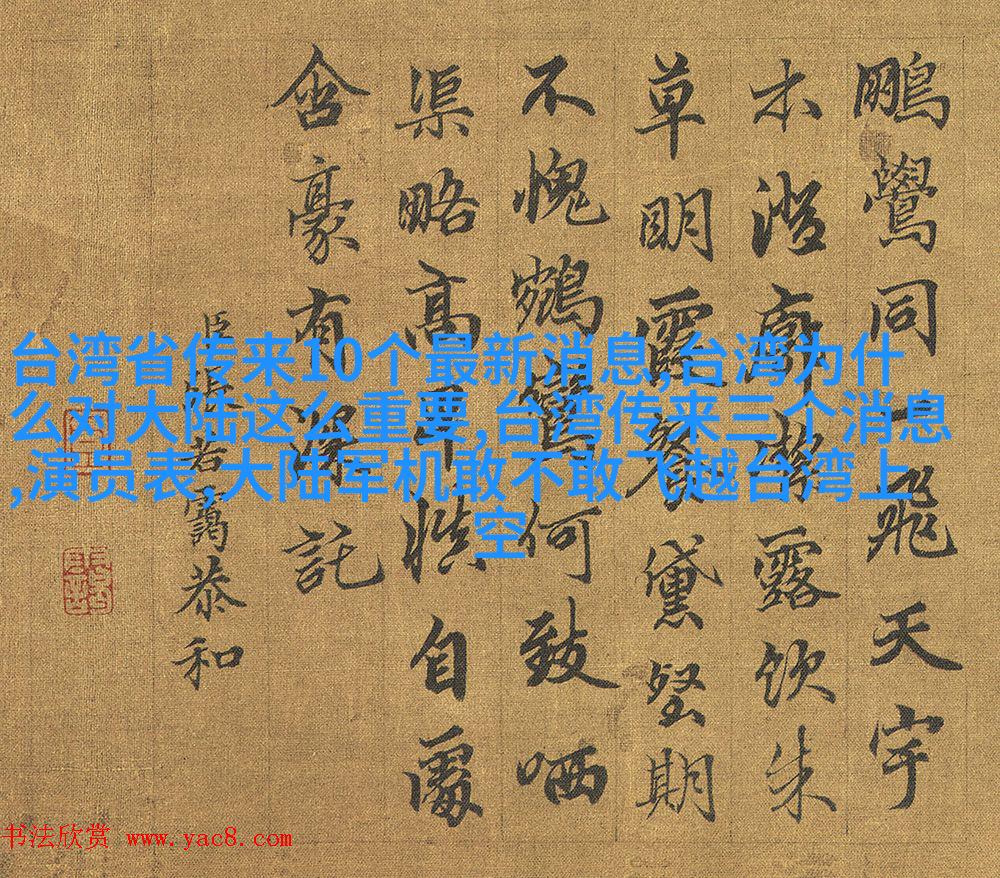 台湾省传来10个最新消息,台湾为什
么对大陆这么重要,台湾传来三个消息
,演员表,大陆军机敢不敢飞越台湾上
空
鵬鷽同一飛天宇
露飲朱
草明霞餐黛壑期
不愧鶴何致哂
渠略高卑慎自
含豪有深託
臣張若靄恭和
书法欣赏 www.yac8.com